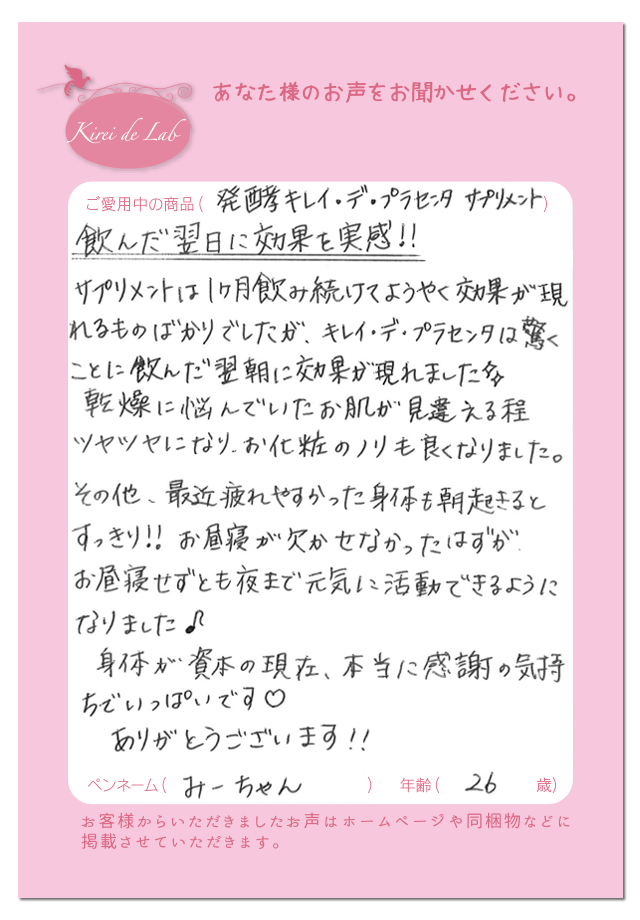 あなた様のお声をお聞かせください。
Kirei de Lab
ご愛用中の商品( 発酵キレイ・デ・プラセンタ サプリメント)
飲んだ翌日に効果を実感!!
サプリメントは1ヶ月飲み続けてようやく効果が現
れるものばかりでしたが、キレイ・デ・プラセンタは驚く
ことに飲んだ翌朝に効果が現れました
乾燥に悩んでいたお肌が見違える程
ツヤツヤになり、お化粧のノリも良くなりました。
その他、最近疲れやすかった身体も朝起きると
すっきり!! お昼寝が欠かせなかったはずが、
お昼寝せずとも夜まで元気に活動できるように
なりました♪
身体が資本の現在、本当に感謝の気持
ちでいっぱいです♡
ありがとうございます!!
ペンネーム( みーちゃん ) 年齢( 26 歳)
お客様からいただきましたお声はホームページや同梱物などに
掲載させていただきます。